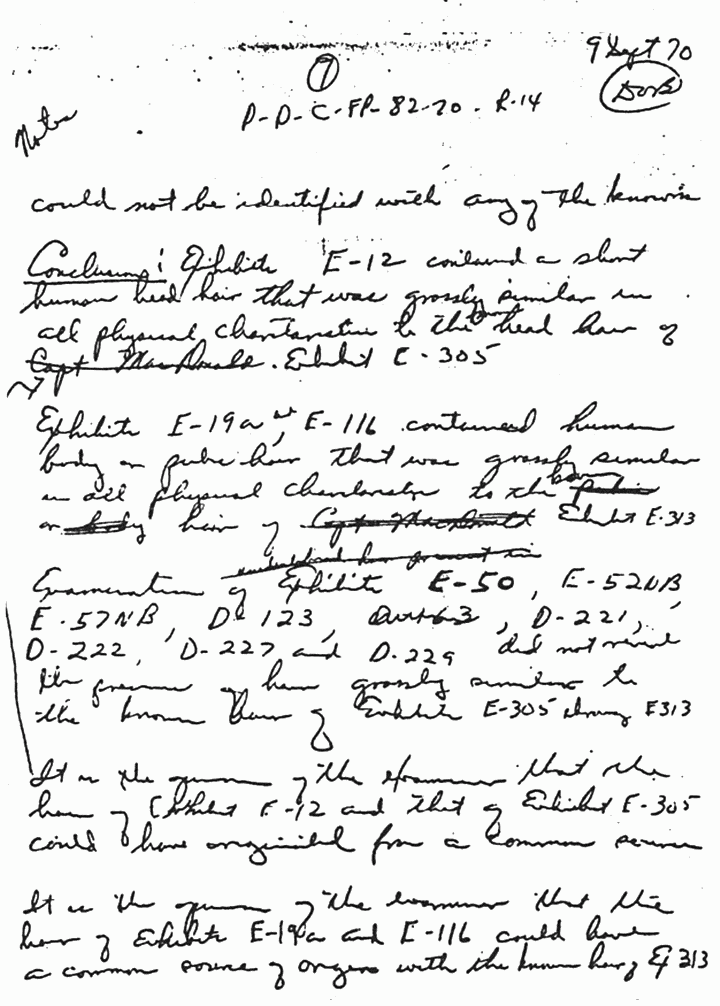 9 Sept 70
7
P-D-C-FP-82-70-R-14
Notes
could not be identified with any of the knowns
Conclusion: Exhibits E-12 contained a short
human head hair that was grossly similar in
all physical characteristics to the known head hair of
Capt MacDonald. Exhibit E-305
Exhibits E-19a, E-116 contained human
body or pubic hair that was grossly similar
in all physical characteristics to the known pubic
or body hair of Capt MacDonald Exhibit E-313
Examination of Exhibits E-50, E-52NB
E-57NB, D-123, D-221,
D-222, D-227 and D-229 did not reveal
the presence of hair grossly similar to
the known hair of Exhibits E-305 E313
It is the opinion of the examiner that the
hair of Exhibit E-12 and that of Exhibit E-305
could have originated from a common source
It is the opinion of the examiner that the
hair of Exhibits E-19a and E-116 could have
a common source of origin with the known hair of Ex 313